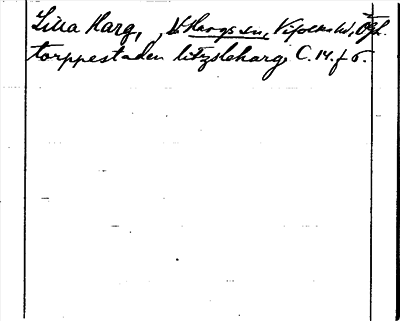 Lilla Harg, , St Hargs sn, Vifolka hd, Ögl.
torppestaden litzsleharg C. 14. f 6.